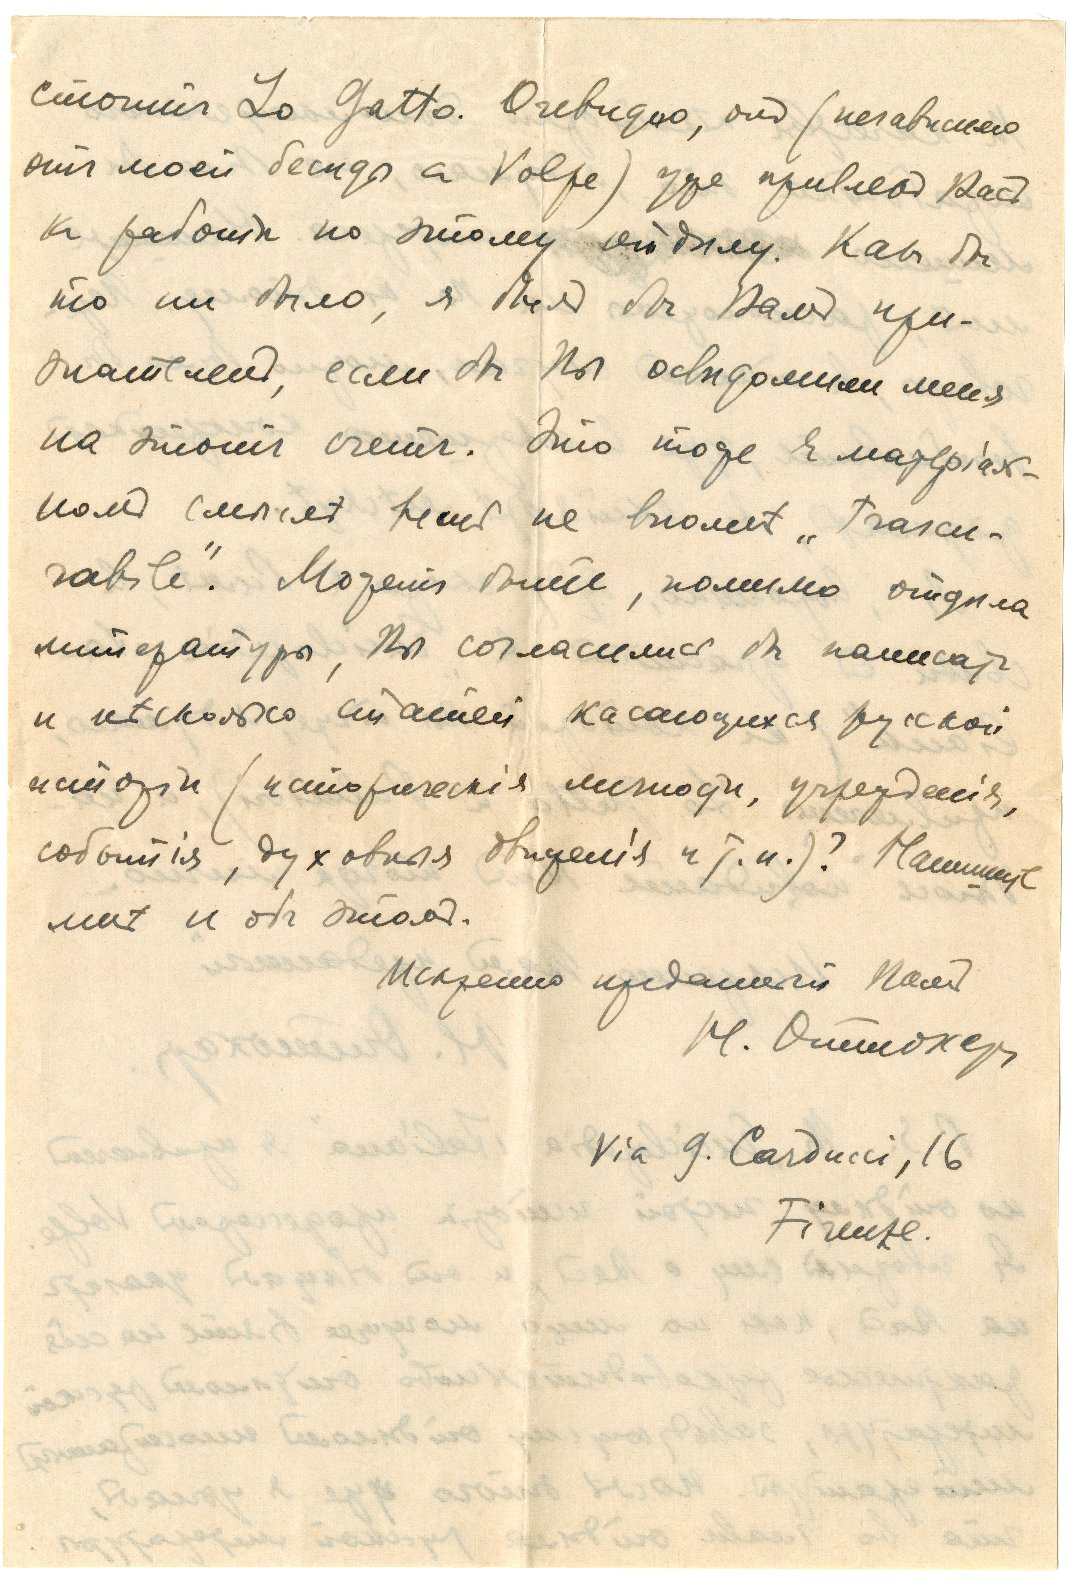 стоитъ Lo Gatto. Очевидно, онъ (независимо
отъ моей бесѣды съ Volpe) уже привлекъ Васъ
къ работѣ по этому отдѣлу. Какъ бы
то ни было, я былъ бы Вамъ при-
знателенъ, если бы Вы освѣдомили меня
на этотъ счетъ. Это тоже въ матеріаль-
номъ смыслѣ вещь не вполнѣ „trascu-
rabile“. Можетъ быть, помимо отдѣла
литературы, Вы согласились бы написать
и нѣсколько статей касающихся русской
исторіи (историческія личности, учрежденія,
событія, духовныя движенія и т.п.)? Напишите
мнѣ и объ этомъ.
Искренно преданный Вамъ
Н. Оттокаръ
Via G. Carducci, 16
Firenze.